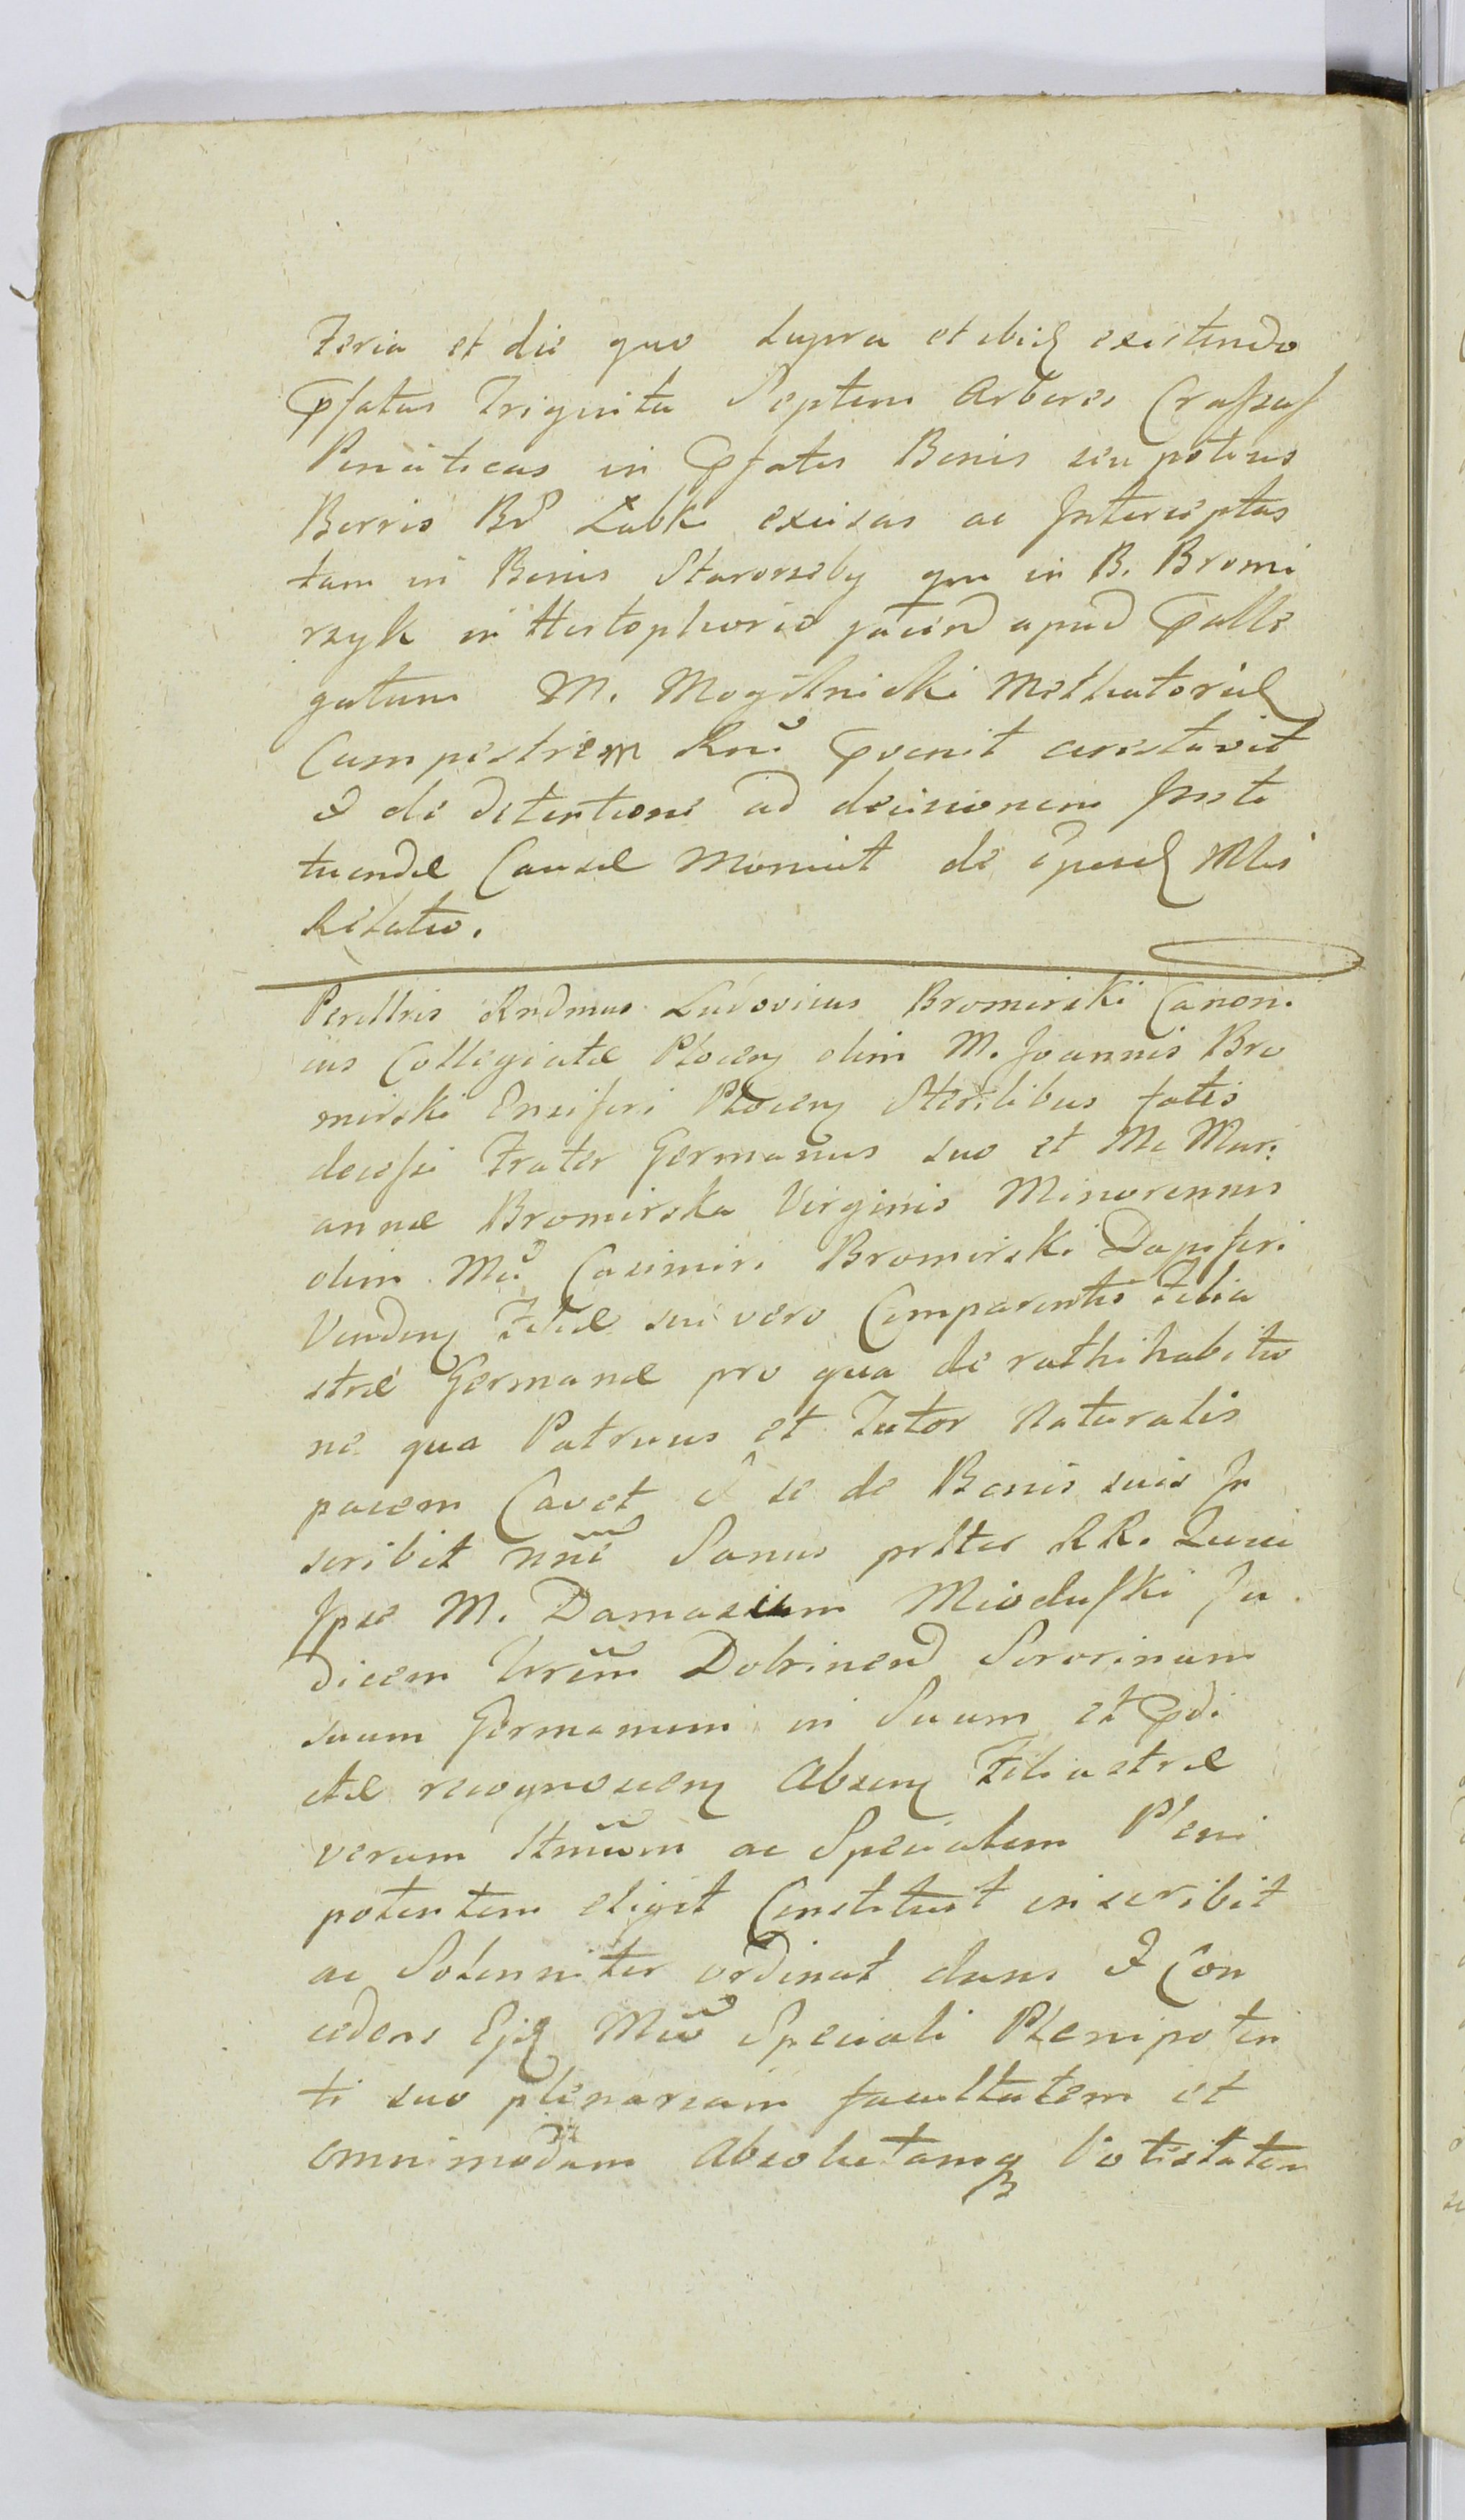 Feria et die quo supra et ibid existendo
Pfatus Triginta Septem Arbores Crassas
Pinaticas in Pfatis Bonis seu potius
Borris Bd Łabki excisas ac Interceptas
tam in Bonis Starorzeby qm in B. Bromi
rzyk in Histophorio jacend apud Palle
gatum M. Mogilnicki Methatorial
Campestrem Rnĩ Pvenit arestavit
& de detentione ad decisionem Insti
tuendæ Causæ Monuit de Mlis
Relatio.
Perillris Rndmus Ludovicus Bromirski Canoni
cus Collegiatæ Płocen olim M. Joannis Bro
mirski Ensiferi Płocen Sterilibus fatis
decessi Frater Germanus suo et Mæ Mari
annæ Bromirska Virginis Minorennis
olim Mci Casimiri Bromirski Dapiferi
Venden Filiæ sui vero Comparentis Filia
stræ Germanæ pro qua de rathihabitio
ne qua Patruus et Tutor Naturalis
pacem Cavet & se de Bonis suis In
scribit nne Sanus prltes RR. Quia
Ipse M. Damasium Mioduski Ju
dicem Trrem Dobrinend Sororinum
suum Germanum in Suum et Pdi
ctæ recognoscen Absen Filiastræ
verum ltmum ac Specialem Pleni
potentem eligit Constituit inscribit
ac Solenniter ordinat dans & Con
cedens Ejd Mco Speciali Plenipoten
ti suo plenariam facultatem et
omnimodam Absolutamq Potestatem